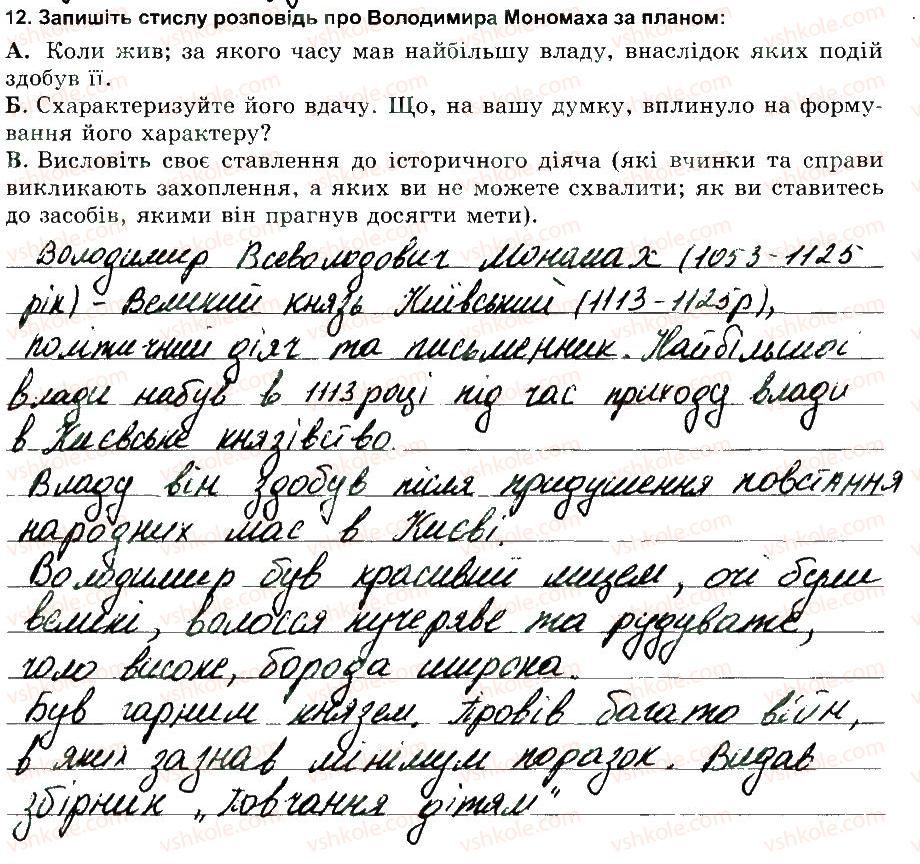 12. Запишіть стислу розповідь про Володимира Мономаха за планом:
А. Коли жив; за якого часу мав найбільшу владу, внаслідок яких подій
здобув її.
Б. Схарактеризуйте його вдачу. Що, на вашу думку, вплинуло на форму-
вання його характеру?
В. Висловіть своє ставлення до історичного діяча (які вчинки та справи
викликають захоплення, а яких ви не можете схвалити; як ви ставитесь
до засобів, якими він прагнув досягти мети).
Володимир Всеволодович Мономах (1053-1125
рік) - Великий князь Київський (1113-1125р),
політичний діяч та письменник. Найбільшої
влади набув в 1113 році під час приходу влади
в Києвське князівство.
Владу він здобув після придушення повстання
народних мас в Києві.
Володимир був красивий лицем, очі були
великі, волосся кучеряве та рудувате,
чоло високе, борода широка.
Був гарним князем. Провів багато війн,
в яких зазнав мінімум поразок. Видав
збірник „Повчання дітям"